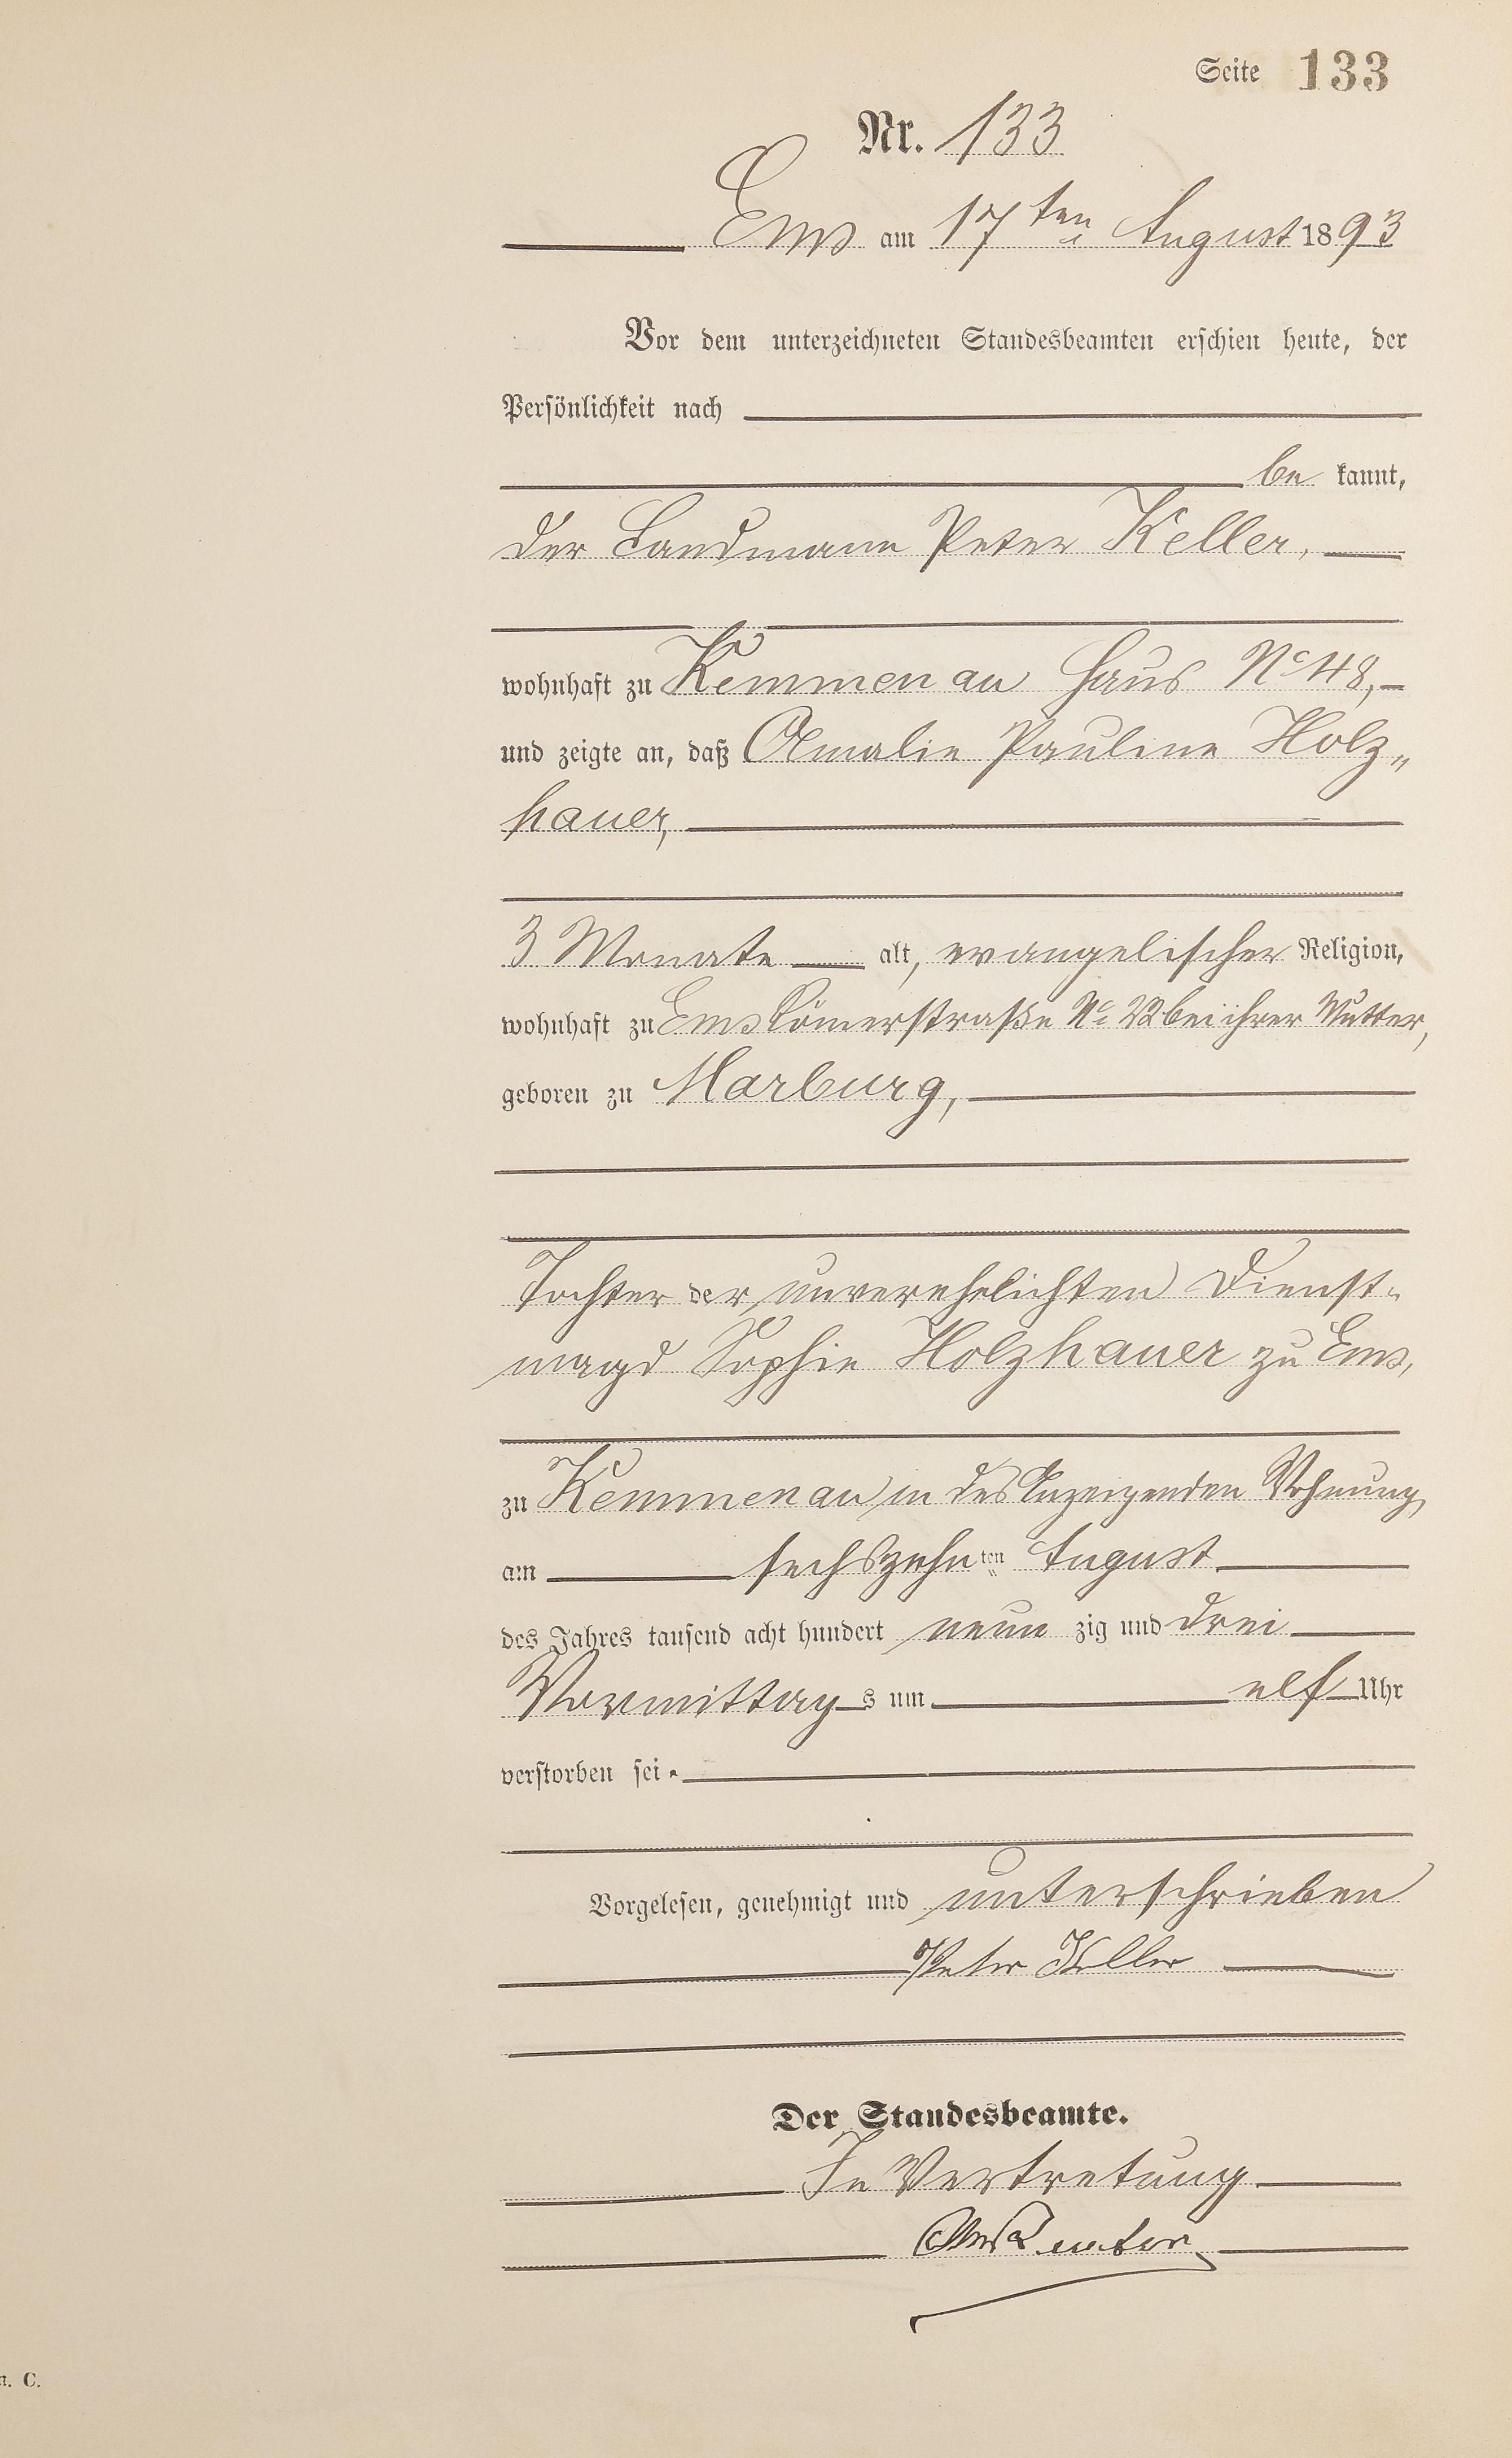 Seite 133
Nr. 133
Ems am 17ten August 1893
Vor dem unterzeichneten Standesbeamten erschien heute, der
Persönlichkeit nach
be kannt,
der Landmann Peter Keller,
wohnhaft zu Kemmenau Haus No 48,
und zeigte an, daß Amalie Pauline Holz„
hauer,
3 Monate alt, evangelischer Religion,
wohnhaft zu Ems Römerstraße No bei ihrer Mutter,
geboren zu Marburg,
Tochter der unverehelichten Dienst„
magd Sophie Holzhauer zu Ems,
zu Kemmenau in des Anzeigenden Wohnung,
am sechszehnten August
des Jahres tausend acht hundert neun zig und drei
Vormittags um elf Uhr
verstorben sei.
Vorgelesen, genehmigt und unterschrieben
Peter Keller
Der Standesbeamte.
In Vertretung
C.